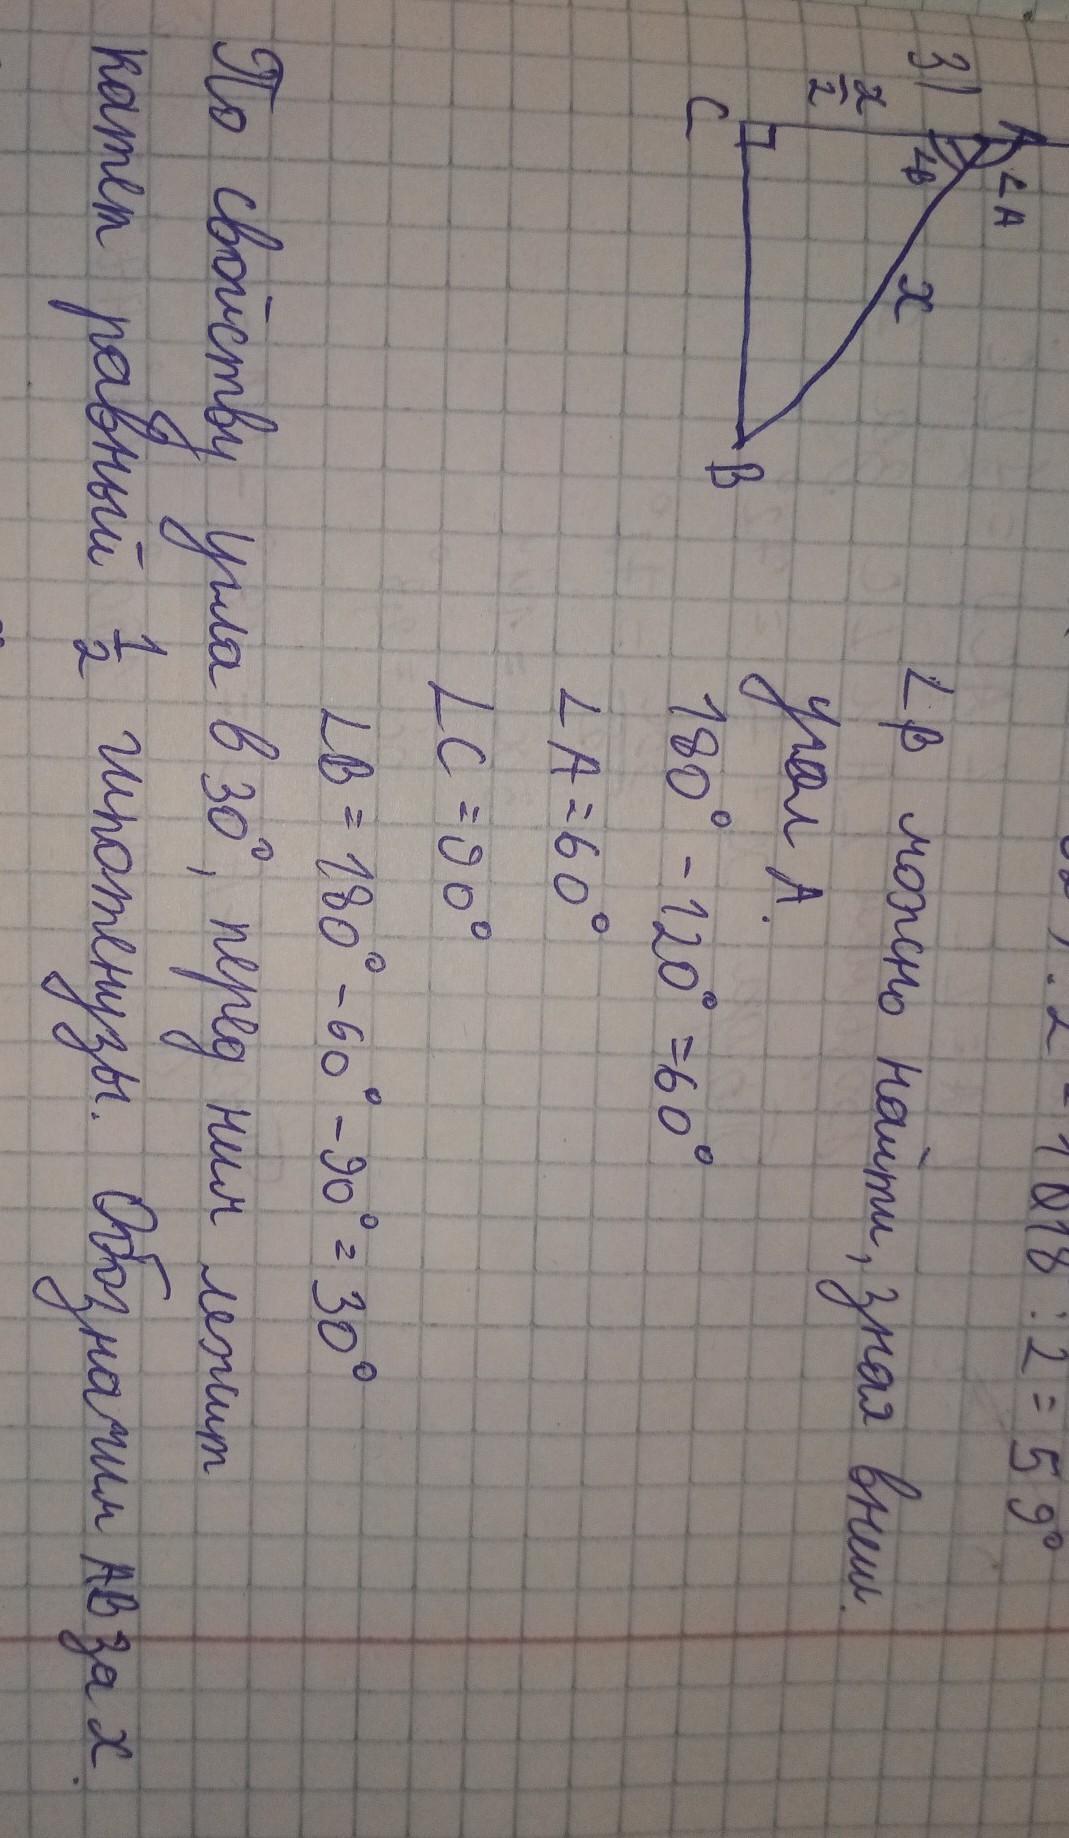 : 2 = 59°
3)
A
∠A
∠B
x
x/2
C
B
∠B можно найти, зная внеш.
угол A.
180° - 120° = 60°
∠A = 60°
∠C = 90°
∠B = 180° - 60° - 90° = 30°
По свойству угла в 30°, перед ним лежит
катет равный 1/2 гипотенузы. Обозначим AB за x.